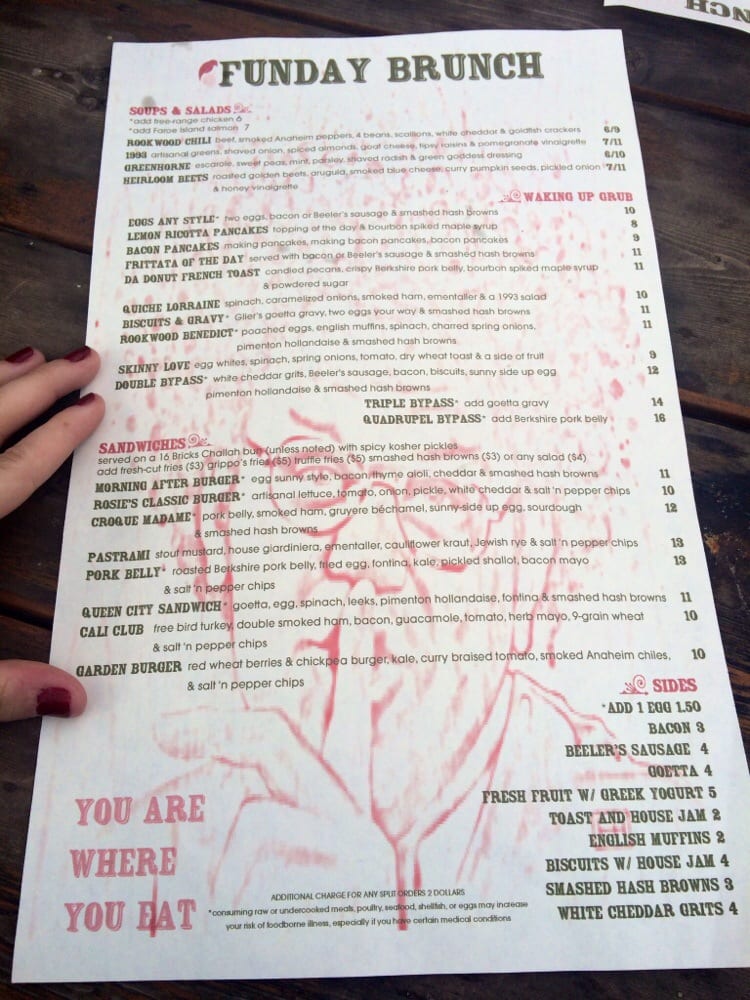 FUNDAY BRUNCH
SOUPS & SALADS
*add free-range chicken 6
*add Faroe Island salmon 7
ROOKWOOD CHILI beef, smoked Anaheim peppers, 4 beans, scallions, white cheddar & goldfish crackers 6/9
1993 artisanal greens, shaved onion, spiced almonds, goat cheese, tipsy raisins & pomegranate vinaigrette 7/11
GREENHORNE escarole, sweet peas, mint, parsley, shaved radish & green goddess dressing 6/10
HEIRLOOM BEETS roasted golden beets, arugula, smoked blue cheese, curry pumpkin seeds, pickled onion 7/11
& honey vinaigrette
WAKING UP GRUB
EGGS ANY STYLE* two eggs, bacon or Beeler's sausage & smashed hash browns 10
LEMON RICOTTA PANCAKES topping of the day & bourbon spiked maple syrup 8
BACON PANCAKES making pancakes, making bacon pancakes, bacon pancakes 9
FRITTATA OF THE DAY served with bacon or Beeler's sausage & smashed hash browns 11
DA DONUT FRENCH TOAST candied pecans, crispy Berkshire pork belly, bourbon spiked maple syrup 11
& powdered sugar
QUICHE LORRAINE spinach, caramelized onions, smoked ham, ementaller & a 1993 salad 10
BISCUITS & GRAVY* Glier's goetta gravy, two eggs your way & smashed hash browns 11
ROOKWOOD BENEDICT* poached eggs, english muffins, spinach, charred spring onions, 11
pimenton hollandaise & smashed hash browns
SKINNY LOVE egg whites, spinach, spring onions, tomato, dry wheat toast & a side of fruit 9
DOUBLE BYPASS* white cheddar grits, Beeler's sausage, bacon, biscuits, sunny side up egg 12
pimenton hollandaise & smashed hash browns
TRIPLE BYPASS* add goetta gravy 14
QUADRUPEL BYPASS* add Berkshire pork belly 16
SANDWICHES
served on a 16 Bricks Challah bun (unless noted) with spicy kosher pickles
add fresh-cut fries ($3) grippo's fries ($5) truffle fries ($5) smashed hash browns ($3) or any salad ($4)
MORNING AFTER BURGER* egg sunny style, bacon, thyme aioli, cheddar & smashed hash browns 11
ROSIE'S CLASSIC BURGER* artisanal lettuce, tomato, onion, pickle, white cheddar & salt 'n pepper chips 10
CROQUE MADAME* pork belly, smoked ham, gruyere béchamel, sunny-side up egg, sourdough 12
& smashed hash browns
PASTRAMI stout mustard, house giardiniera, ementaller, cauliflower kraut, Jewish rye & salt 'n pepper chips 13
PORK BELLY* roasted Berkshire pork belly, fried egg, fontina, kale, pickled shallot, bacon mayo 13
& salt 'n pepper chips
QUEEN CITY SANDWICH* goetta, egg, spinach, leeks, pimenton hollandaise, fontina & smashed hash browns 11
CALI CLUB free bird turkey, double smoked ham, bacon, guacamole, tomato, herb mayo, 9-grain wheat 10
& salt 'n pepper chips
GARDEN BURGER red wheat berries & chickpea burger, kale, curry braised tomato, smoked Anaheim chiles, 10
& salt 'n pepper chips
SIDES
*ADD 1 EGG 1.50
BACON 3
BEELER'S SAUSAGE 4
GOETTA 4
FRESH FRUIT W/ GREEK YOGURT 5
TOAST AND HOUSE JAM 2
ENGLISH MUFFINS 2
BISCUITS W/ HOUSE JAM 4
SMASHED HASH BROWNS 3
WHITE CHEDDAR GRITS 4
YOU ARE
WHERE
YOU EAT
ADDITIONAL CHARGE FOR ANY SPLIT ORDERS 2 DOLLARS
*consuming raw or undercooked meats, poultry, seafood, shellfish, or eggs may increase
your risk of foodborne illness, especially if you have certain medical conditions